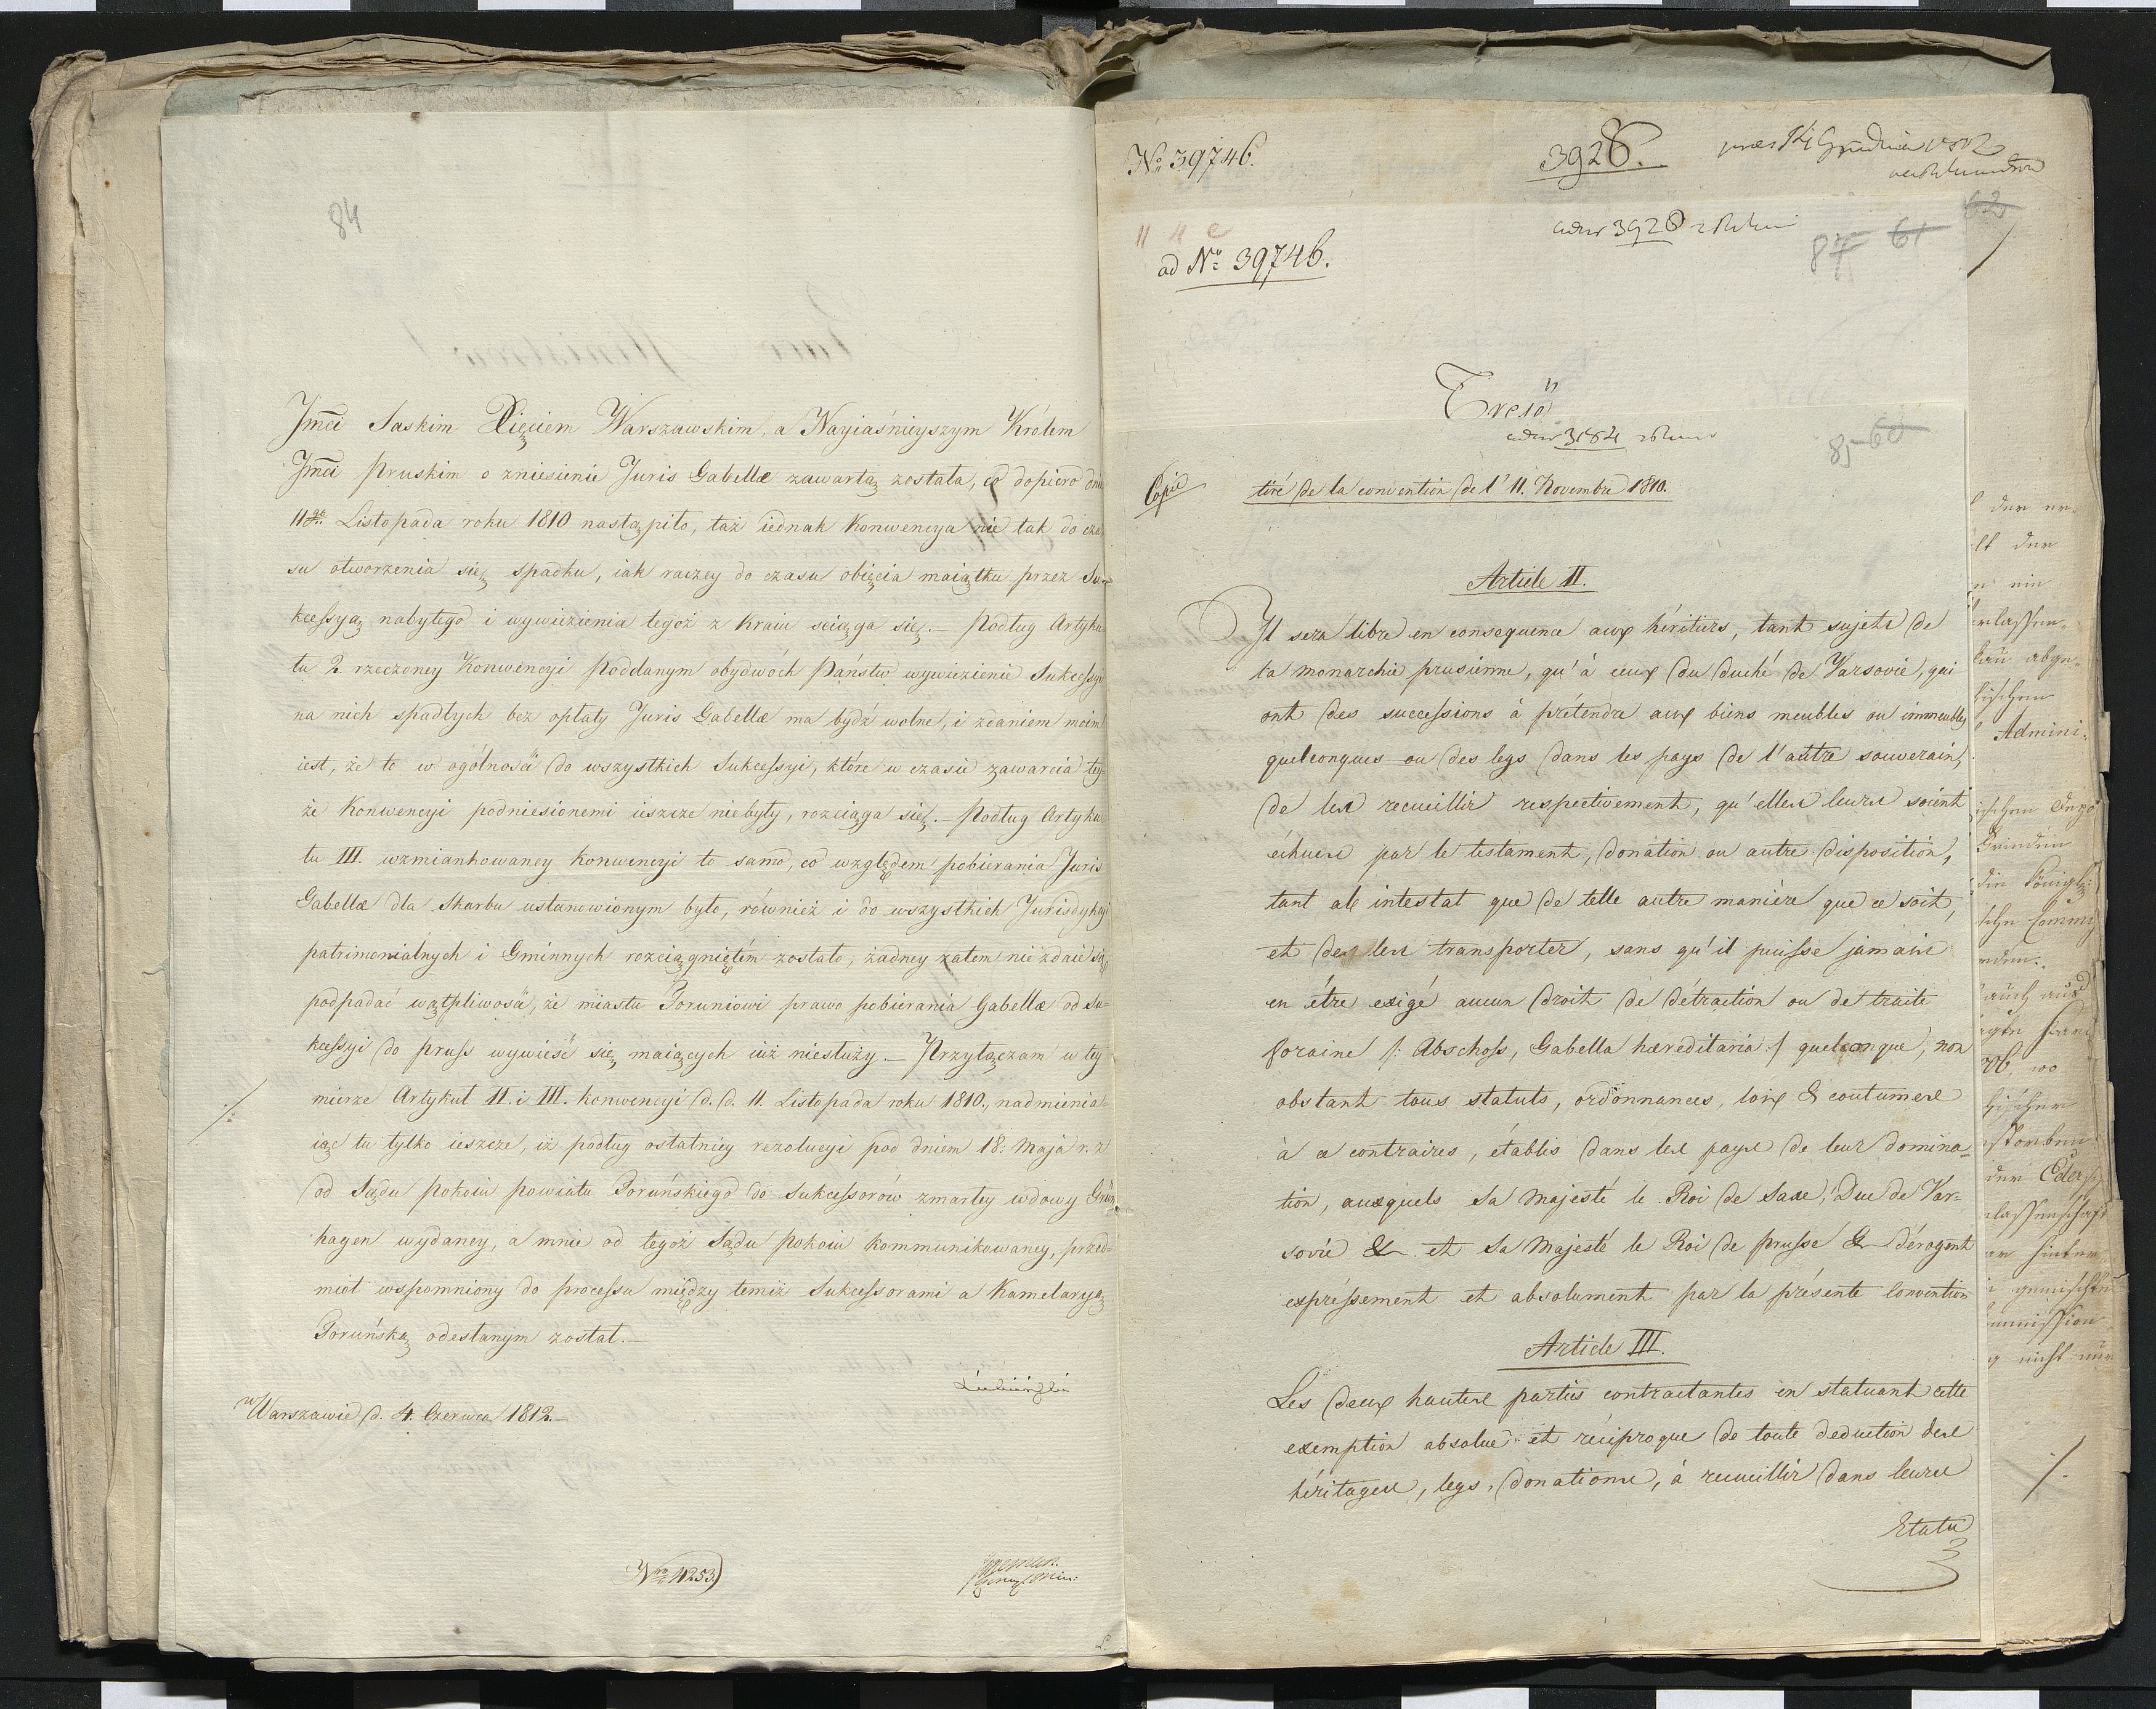 84
Jmci Saskim Xięciem Warszawskim, a Nayiaśnieyszym Królem
Jmci Pruskim o zniesienie Juris Gabellæ zawartą została, co dopiero dnia
11go Listopada roku 1810 nastąpiło, taż iednak Konwencya nie tak do cza-
su otworzenia się spadku, iak raczey do czasu obięcia maiątku przez Su-
kcessyą nabytego i wywiezienia tegoż z Kraiu sciąga się.— Podług Artyku-
łu 2. rzeczoney Konwencyi Poddanym obydwóch Państw wywiezienie Sukcessyi
na nich spadłych bez opłaty Juris Gabellæ ma bydź wolne, i zdaniem moim
iest, że to w ogólności do wszystkich Sukcessyi, które w czasie zawarcia tey-
że Konwencyi podniesionemi ieszcze niebyły, rozciąga się.— Podług Artyku-
łu III. wzmiankowaney Konwencyi to samo, co względem pobierania Juris
Gabellæ dla Skarbu ustanowionym było, również i do wszystkich Jurisdykcyi
patrimonialnych i Gminnych rozciągniętém zostało, żadney zatem nie zdaie się
podpadać wątpliwości, że miastu Toruniowi prawo pobierania Gabellæ od Su-
kcessyi do Pruss wywieść się maiących iuż niesłuży.— Przyłączam w tey
mierze Artykuł II. i III. Konwencyi d. d. 11. Listopada roku 1810., nadmienia-
iąc tu tylko ieszcze, iż podług ostatniey rezolucyi pod dniem 18. Maja r. z
od Sądu Pokoiu Powiatu Toruńskiego do Sukcessorów zmarłey wdowy Grün-
hagen wydaney, a mnie od tegoż Sądu Pokoiu kommunikowaney, przed-
miot wspomniony do processu między temiż Sukcessorami a Kamelaryą
Toruńską odesłanym został.—
Łubieński
w Warszawie d. 4. Czerwca 1812.—
Nro 4253
No 39746.
3928.
ad No 39746.
3928
87 61
62
3184
85 60
Copie
tiré de la convention de l'11. Novembre 1810.
Article II.
Il sera libre en consequence aux héritiers, tant sujets de
la monarchie prusienne, qu'à ceux du duché de Varsovie, qui
ont des successions à prétendre aux biens meubles ou immeubles
quelconques ou des legs dans les pays de l'autre souverain,
de les recueillir respectivement, qu'elles leurs soient
échues par le testament, donation ou autre disposition,
tant ab intestat que de telle autre manière que ce soit,
et de les transporter, sans qu'il puisse jamais
en être exigé aucun droit de détraction ou de traite
foraine /: Abschoss, Gabella hæreditaria :/ quelconque, non
obstant tous statuts, ordonnances, loix & coutumes
à ce contraires, établis dans les pays de leur domina-
tion, auxquels Sa Majesté le Roi de Saxe, Duc de Var-
sovie & et Sa Majesté le Roi de prusse & dérogent
expréssement et absolument par la présente Convention
Article III.
Les deux hautes parties contractantes en statuant cette
exemption absolue et réciproque de toute deduction des
héritages, legs, donations, à recueillir dans leurs
Etats
der er-
der
ein
abge-
Admini-
wo
nicht nur